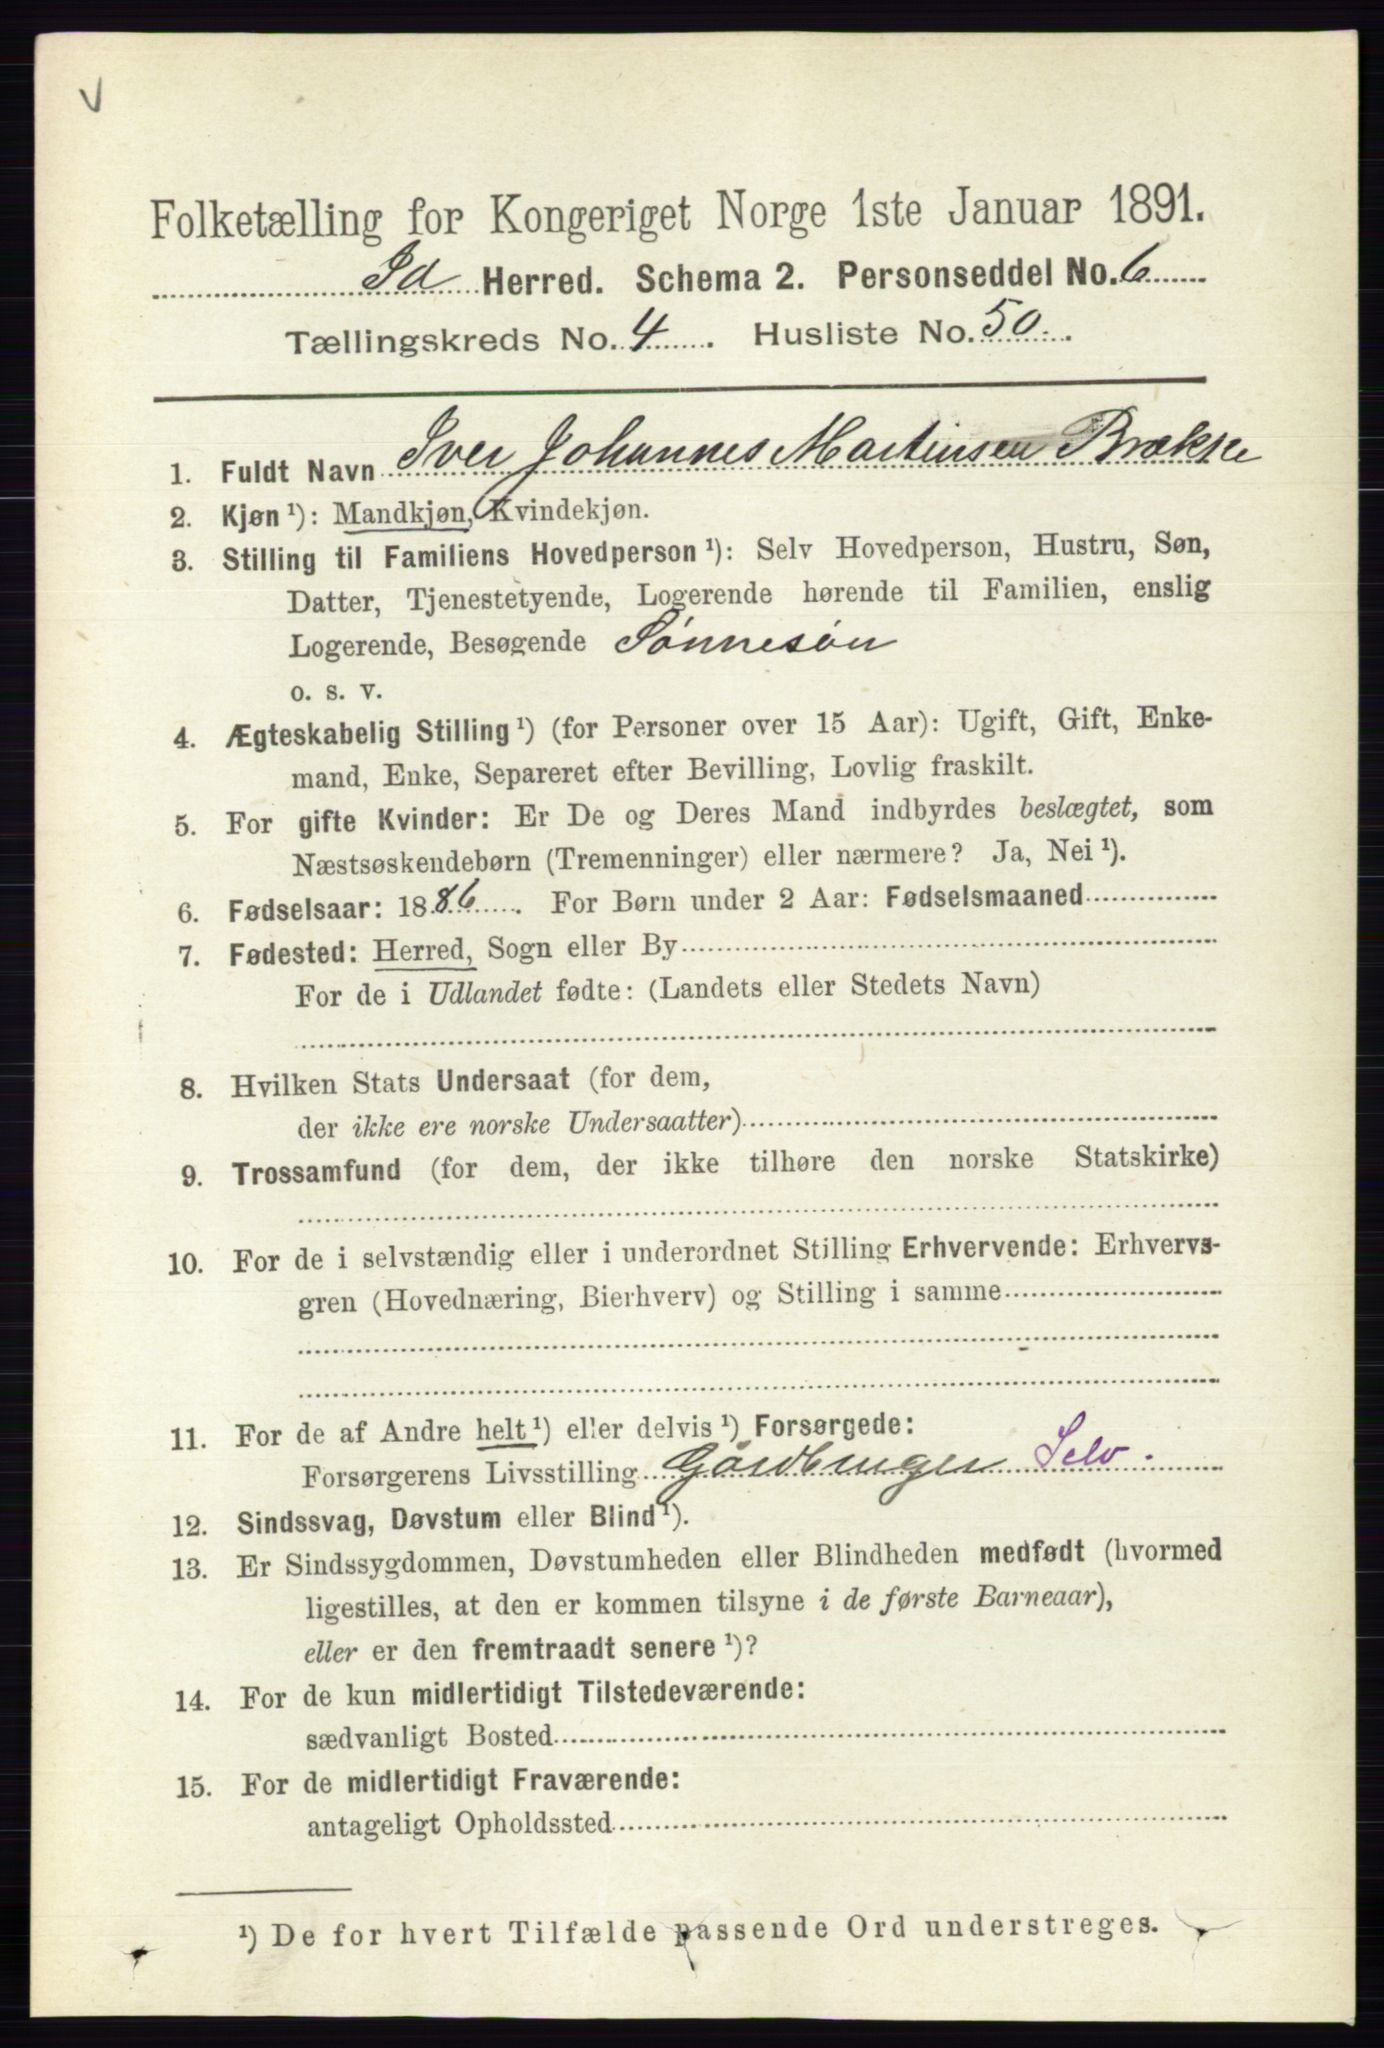 V
Folketælling for Kongeriget Norge 1ste Januar 1891.
Id Herred. Schema 2. Personseddel No. 6
Tællingskreds No. 4. Husliste No. 50.
1. Fuldt Navn Iver Johannes Martinsen Brække
2. Kjøn ¹): Mandkjøn, Kvindekjøn.
3. Stilling til Familiens Hovedperson ¹): Selv Hovedperson, Hustru, Søn,
Datter, Tjenestetyende, Logerende hørende til Familien, enslig
Logerende, Besøgende Sønnesøn
o. s. v.
4. Ægteskabelig Stilling ¹) (for Personer over 15 Aar): Ugift, Gift, Enke-
mand, Enke, Separeret efter Bevilling, Lovlig fraskilt.
5. For gifte Kvinder: Er De og Deres Mand indbyrdes beslægtet, som
Næstsøskendebørn (Tremenninger) eller nærmere? Ja, Nei ¹).
6. Fødselsaar: 1886. For Børn under 2 Aar: Fødselsmaaned
7. Fødested: Herred, Sogn eller By
For de i Udlandet fødte: (Landets eller Stedets Navn)
8. Hvilken Stats Undersaat (for dem,
der ikke ere norske Undersaatter)
9. Trossamfund (for dem, der ikke tilhøre den norske Statskirke)
10. For de i selvstændig eller i underordnet Stilling Erhvervende: Erhvervs-
gren (Hovednæring, Bierhverv) og Stilling i samme
11. For de af Andre helt ¹) eller delvis ¹) Forsørgede:
Forsørgerens Livsstilling Gårdbruger Selv.
12. Sindssvag, Døvstum eller Blind ¹).
13. Er Sindssygdommen, Døvstumheden eller Blindheden medfødt (hvormed
ligestilles, at den er kommen tilsyne i de første Barneaar),
eller er den fremtraadt senere ¹)?
14. For de kun midlertidigt Tilstedeværende:
sædvanligt Bosted
15. For de midlertidigt Fraværende:
antageligt Opholdssted
¹) De for hvert Tilfælde passende Ord understreges.